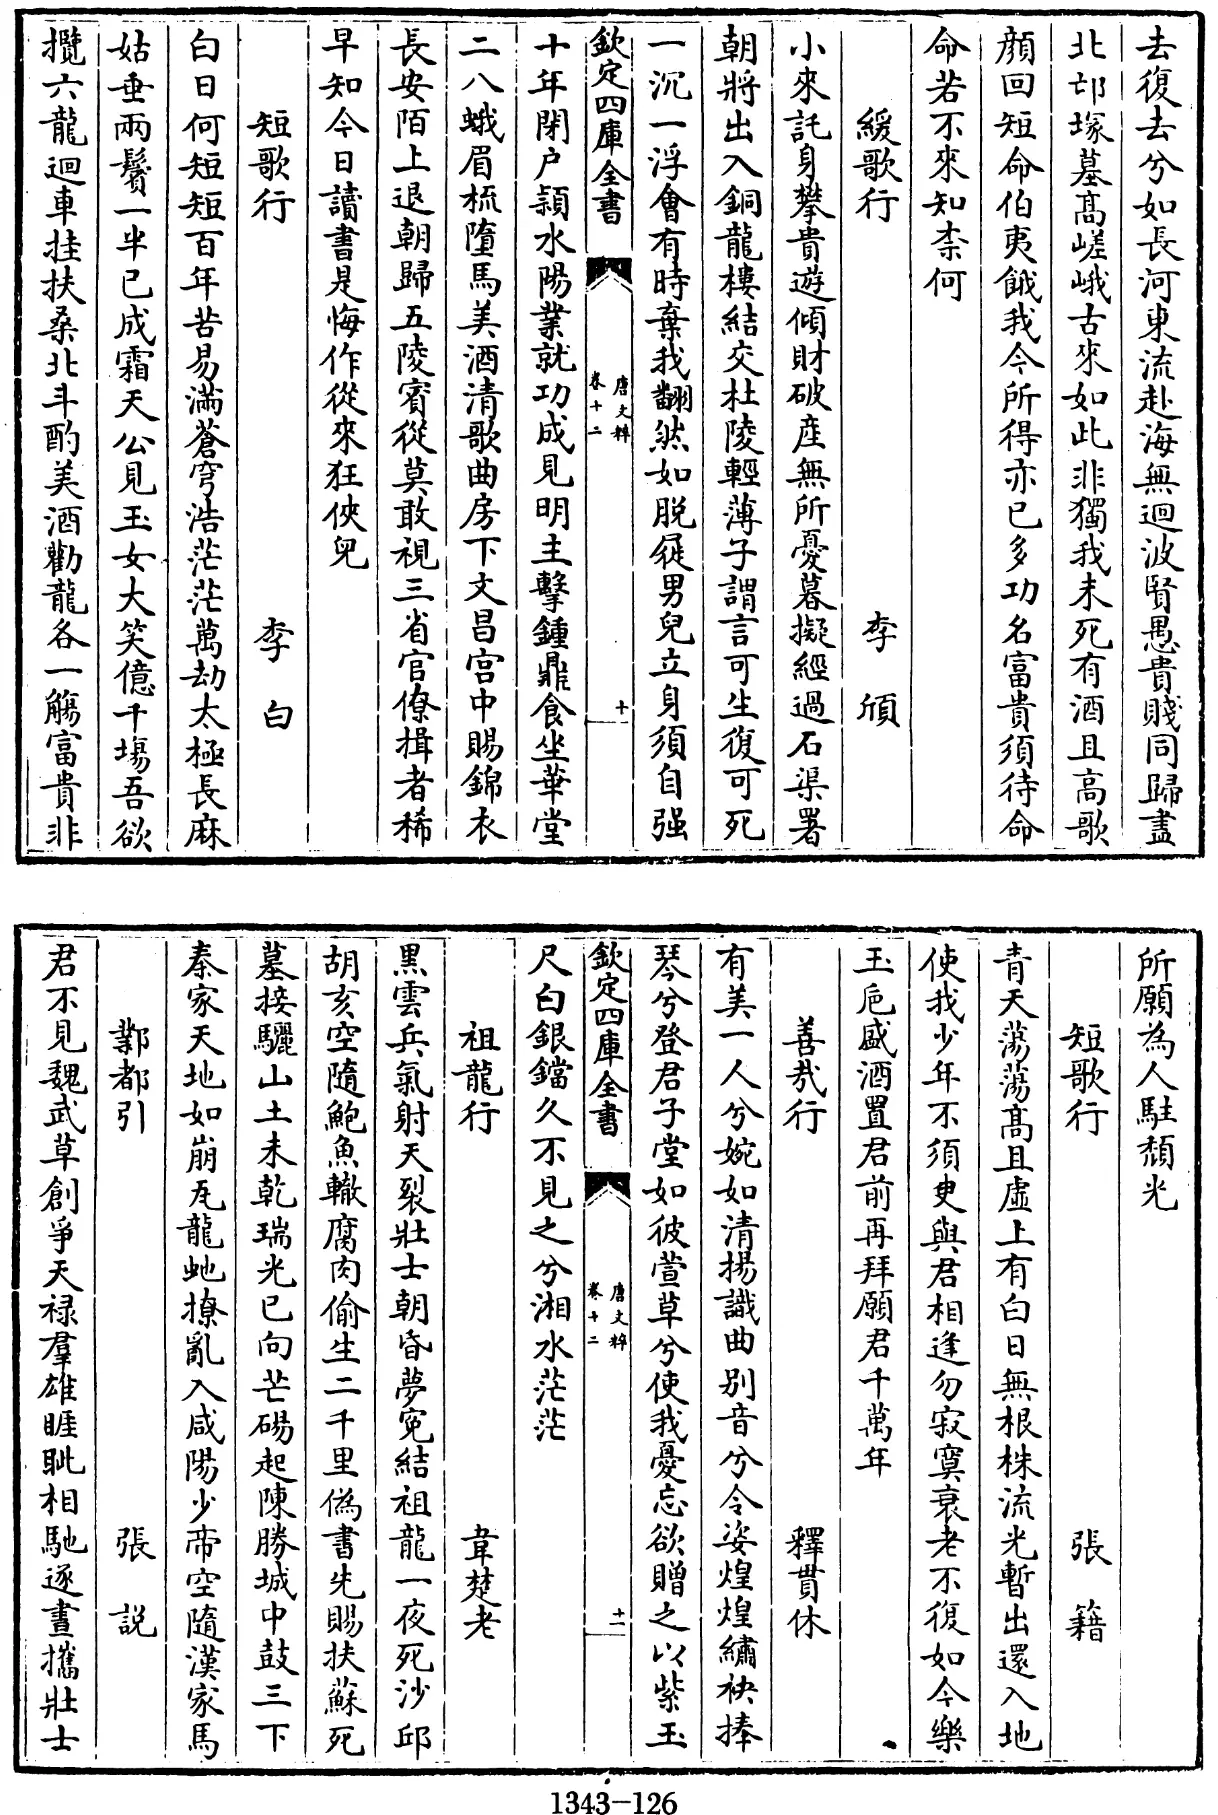 去復去兮如長河東流赴海無迴波賢愚貴賤同歸盡
北邙塚墓髙嵯峨古來如此非獨我未死有酒且高歌
顔回短命伯夷餓我今所得亦已多功名富貴須待命
命若不來知柰何
緩歌行 李頎
小來託身攀貴遊傾財破産無所憂暮擬經過石渠署
朝將出入銅龍樓結交杜陵輕薄子謂言可生復可死
一沉一浮會有時棄我翻然如脱屣男兒立身須自强
欽定四庫全書 唐文粹 卷十二 十
十年閉户潁水陽業就功成見明主擊鍾鼎食坐華堂
二八蛾眉梳墮馬美酒清歌曲房下文昌宫中賜錦衣
長安陌上退朝歸五陵賓從莫敢視三省官僚揖者稀
早知今日讀書是悔作從來狂俠兒
短歌行 李白
白日何短短百年苦易滿蒼穹浩茫茫萬劫太極長麻
姑垂兩鬢一半已成霜天公見玉女大笑億千塲吾欲
攬六龍迴車挂扶桑北斗酌美酒勸龍各一觴富貴非
所願為人駐頽光
短歌行 張籍
青天蕩蕩髙且虛上有白日無根株流光暫出還入地
使我少年不須臾與君相逢勿寂寞衰老不復如今樂
玉巵盛酒置君前再拜願君千萬年
善哉行 釋貫休
有美一人兮婉如清揚識曲别音兮令姿煌煌繡袂捧
琴兮登君子堂如彼萱草兮使我憂忘欲贈之以紫玉
欽定四庫全書 唐文粹 卷十二 十一
尺白銀鐺久不見之兮湘水茫茫
祖龍行 韋楚老
黑雲兵氣射天裂壯士朝昏夢寃結祖龍一夜死沙邱
胡亥空隨鮑魚轍腐肉偷生二千里僞書先賜扶蘇死
墓接驪山土未乾瑞光已向芒碭起陳勝城中鼓三下
秦家天地如崩瓦龍虵撩亂入咸陽少帝空隨漢家馬
鄴都引 張説
君不見魏武草創爭天禄羣雄睚眦相馳逐晝攜壯士
1343-126